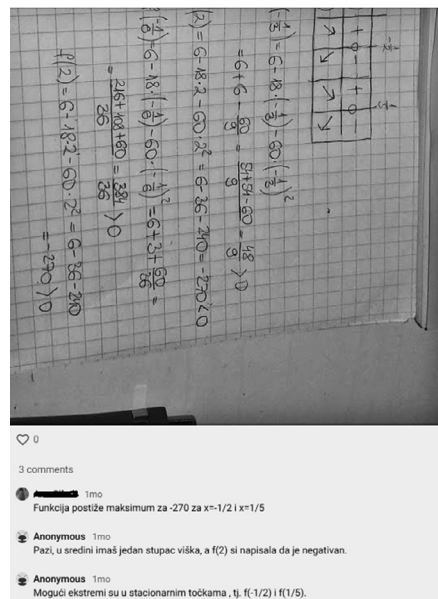 -1/2 1/5
+ 0 - + 0 -
↗ ↘ ↗ ↘
(-1/3)=6-18·(-1/3)-60·(-1/3)²
=6+6-60/9=(54+54-60)/9=48/9>0
(2)=6-18·2-60·2²=6-36-240=-270<0
(-1/6)=6-18·(-1/6)-60·(-1/6)²=6+3+60/36=
=(216+108+60)/36=384/36>0
f(2)=6-18·2-60·2²=6-36-240
=-270>0
0
3 comments
1mo
Funkcija postiže maksimum za -270 za x=-1/2 i x=1/5
Anonymous 1mo
Pazi, u sredini imaš jedan stupac viška, a f(2) si napisala da je negativan.
Anonymous 1mo
Mogući ekstremi su u stacionarnim točkama , tj. f(-1/2) i f(1/5).